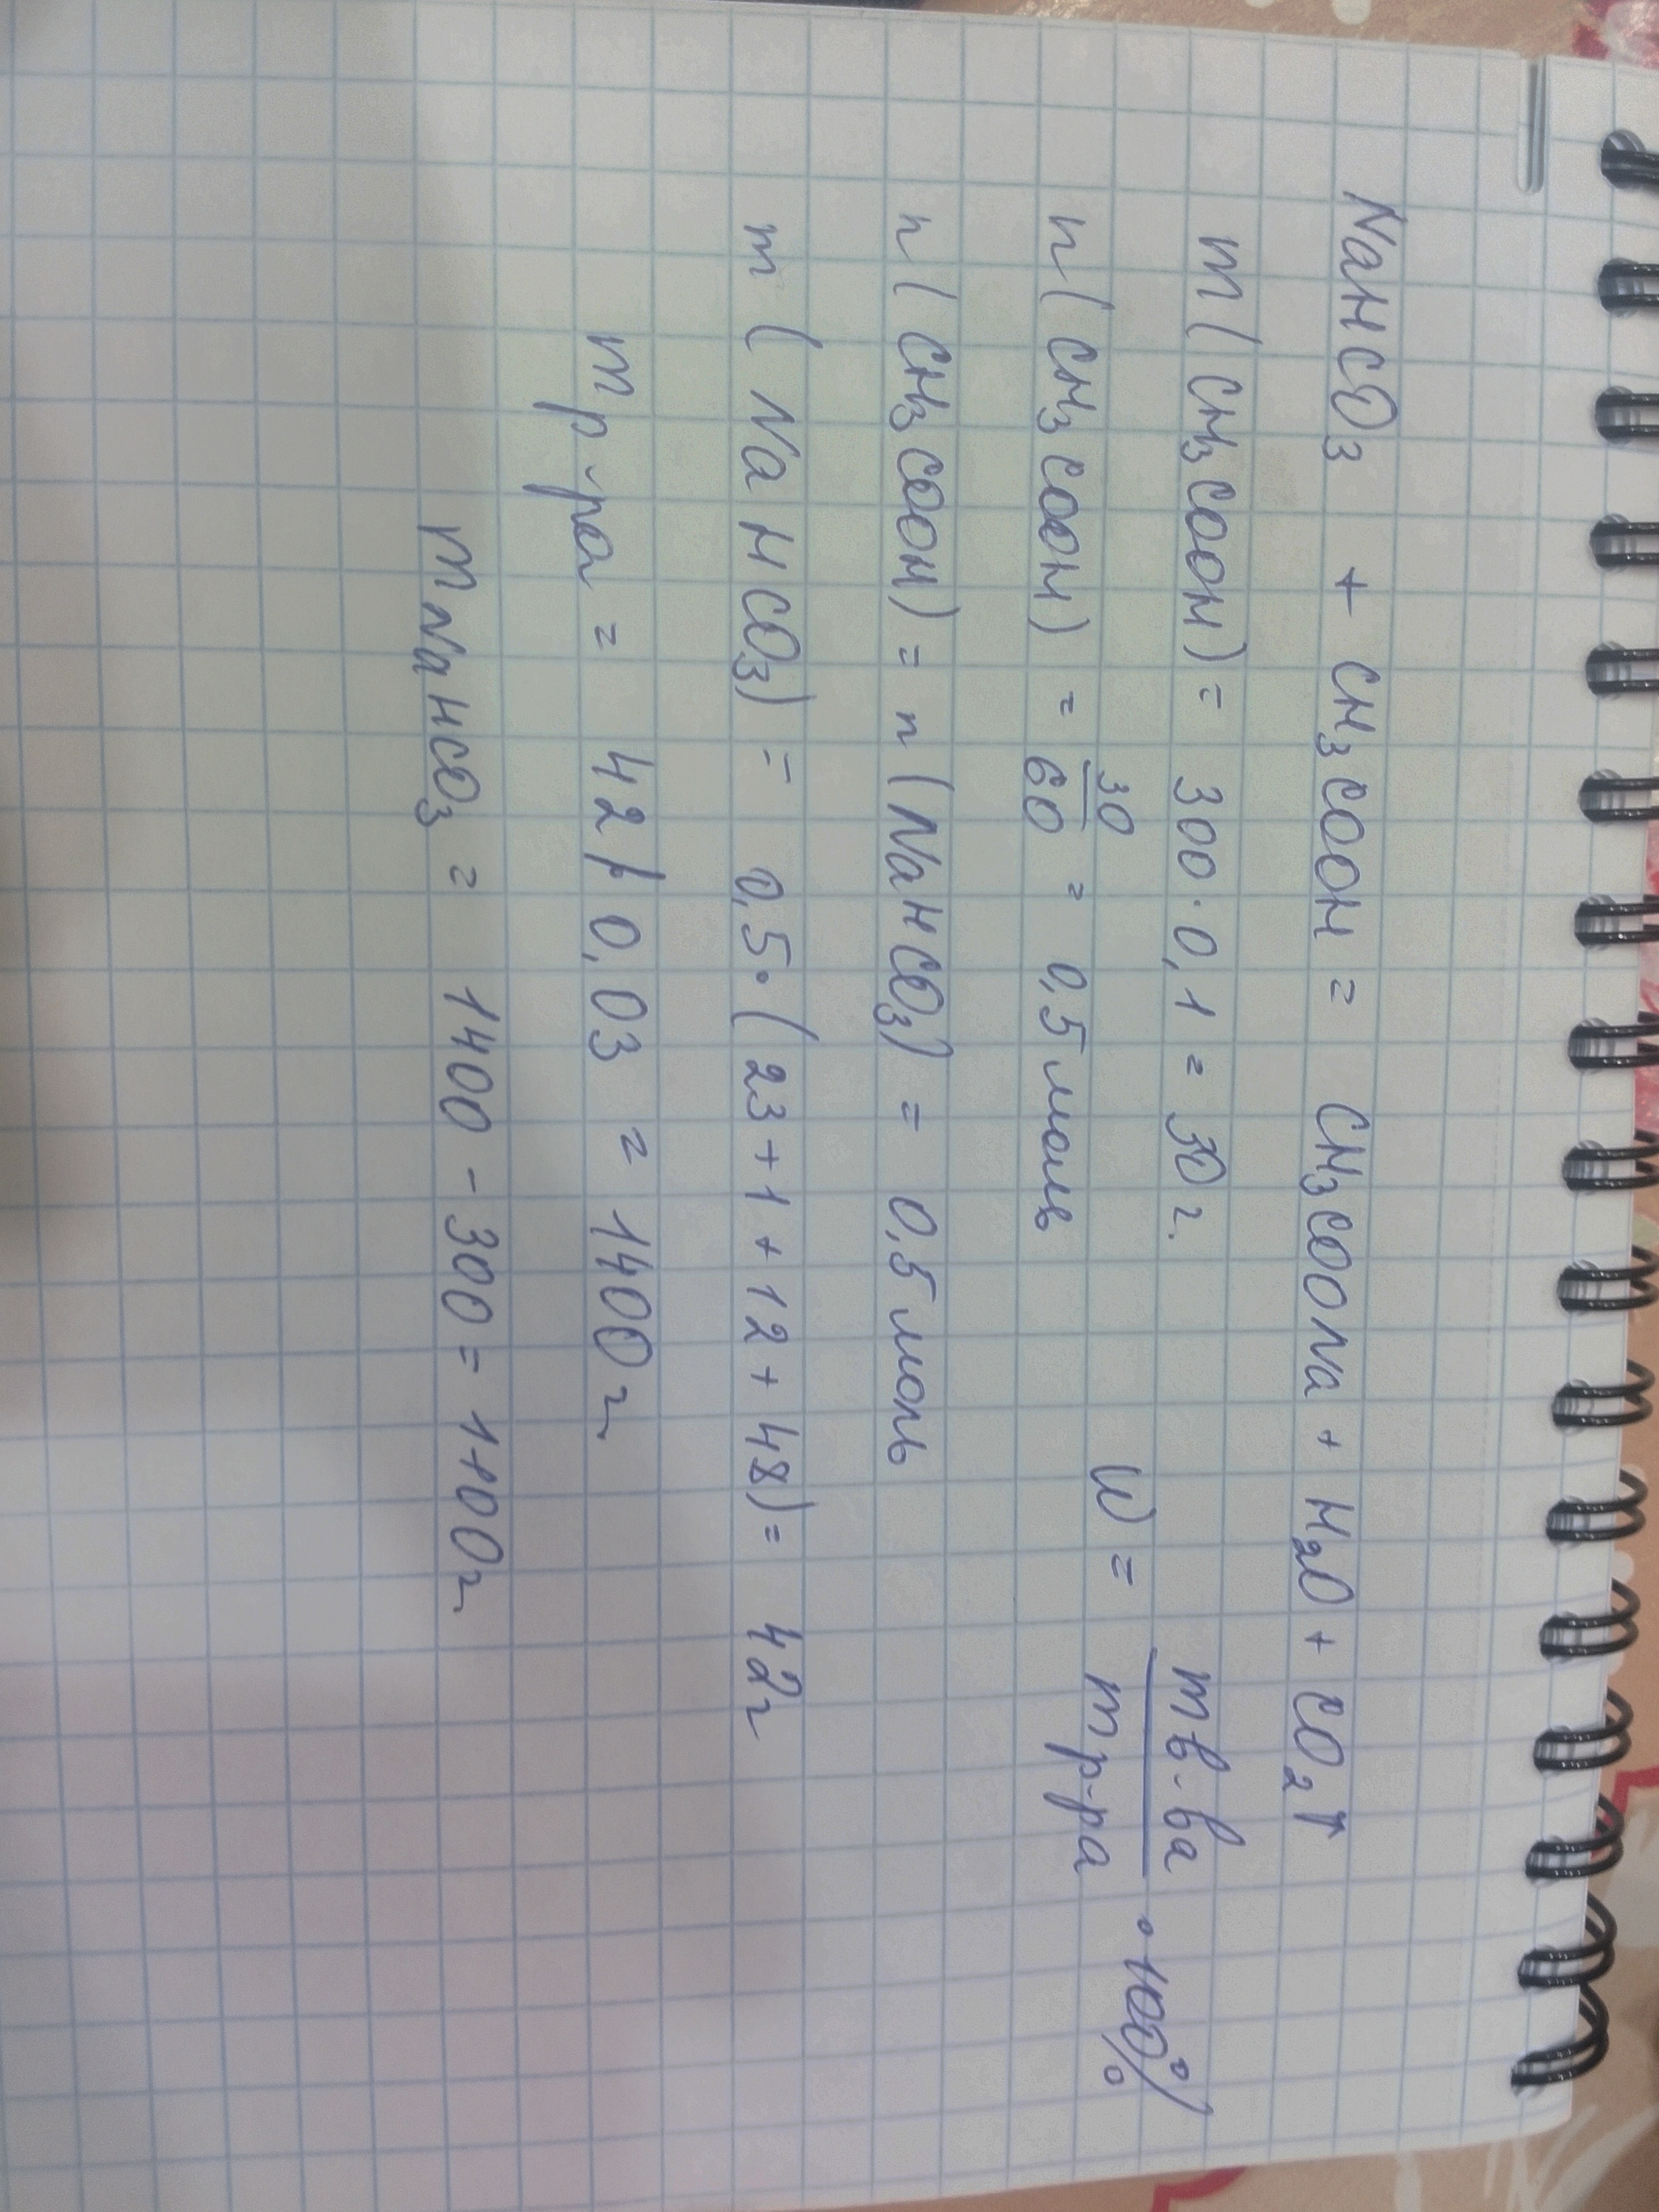 NaHCO3 + CH3COOH = CH3COONa + H2O + CO2↑
m(CH3COOH) = 300·0,1 = 30 г.
n(CH3COOH) = 30/60 = 0,5 моль
W = m в-ва / m р-ра · 100%
n(CH3COOH) = n(NaHCO3) = 0,5 моль
m(NaHCO3) = 0,5·(23+1+12+48) = 42г
m р-ра = 42/0,03 = 1400г
m NaHCO3 = 1400 - 300 = 1100г